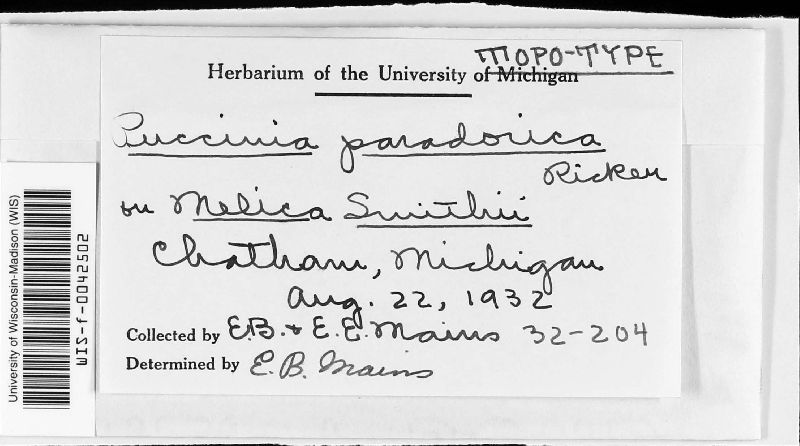 TOPO-TYPE
Herbarium of the University of Michigan
Puccinia paradoxica
Ricker
on Melica Smithii
Chatham, Michigan
Aug. 22, 1932
Collected by E.B. & E.E. Mains 32-204
Determined by E.B. Mains
University of Wisconsin-Madison (WIS)
WIS-f-0042502